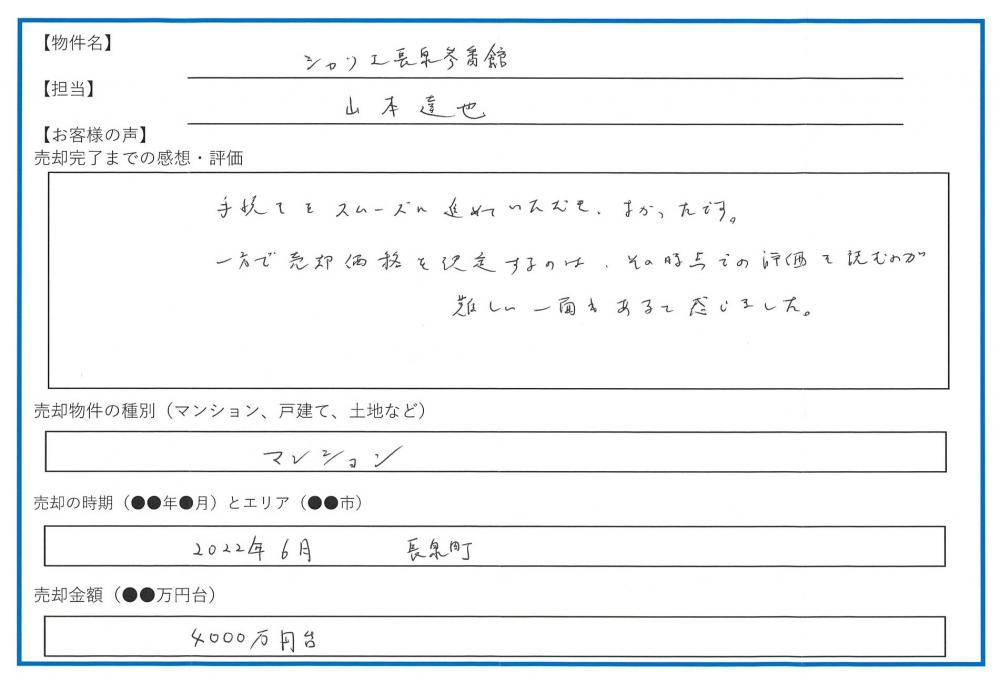 【物件名】
シャリエ長泉参番館
【担当】
山本達也
【お客様の声】
売却完了までの感想・評価
手続きをスムーズに進めていただき、よかったです。
一方で売却価格を決定するのは、その時点での評価を読むのが
難しい一面もあると感じました。
売却物件の種別（マンション、戸建て、土地など）
マンション
売却の時期（●●年●月）とエリア（●●市）
2022年6月 長泉町
売却金額（●●万円台）
4000万円台